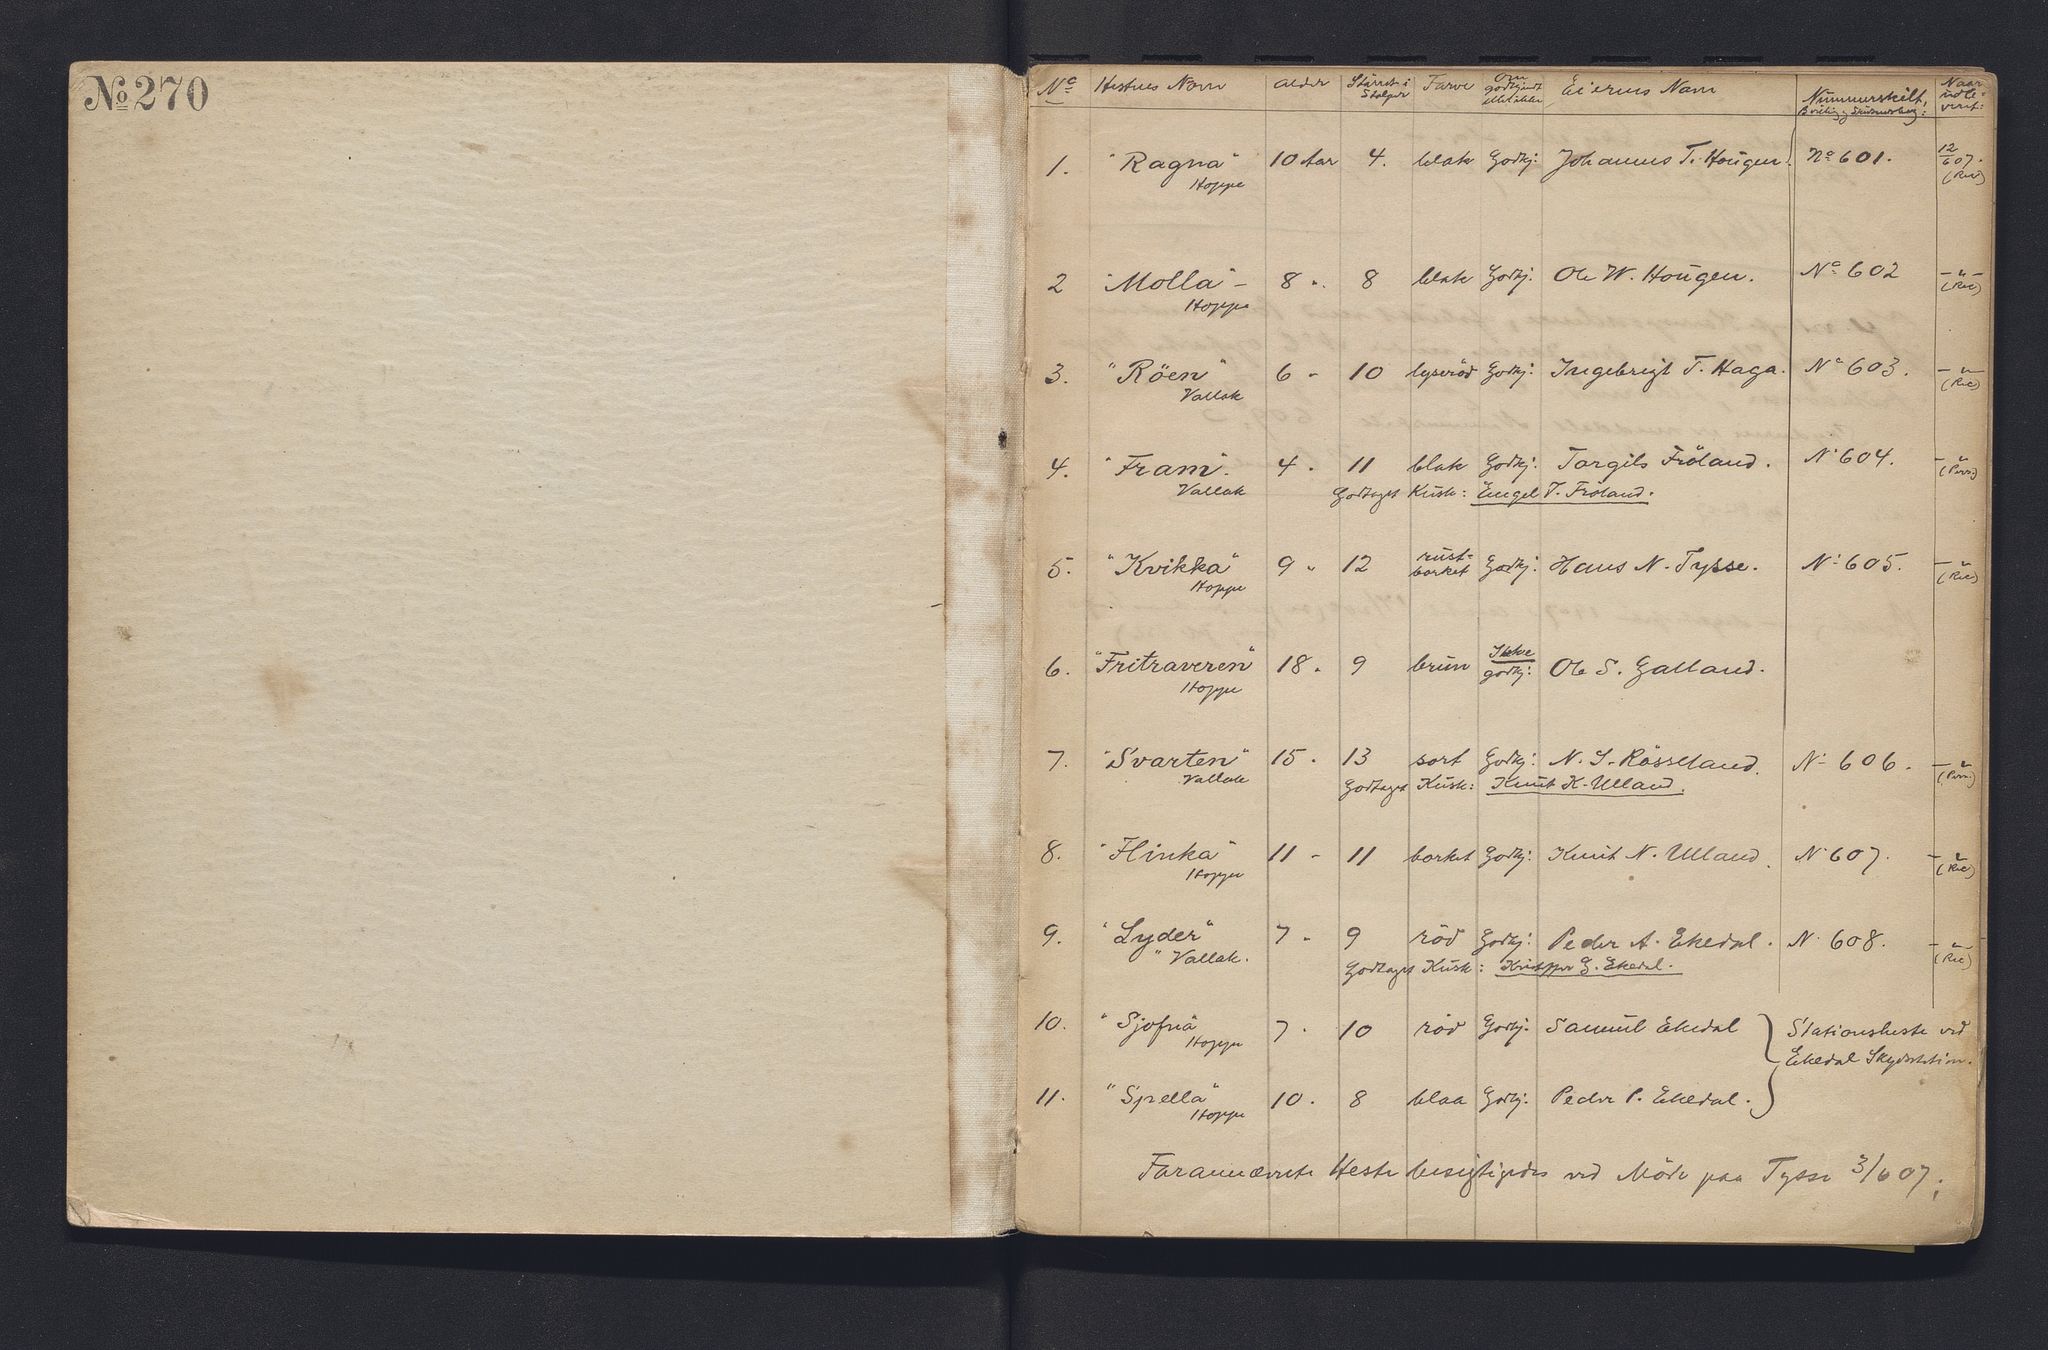 No 270
No Hestens Navn Alder Størrelse i Stolper Farve Om godkjendt eller ikke Eierens Navn Nummerskilt, Naar udle- veret:
1. "Ragna" 10 Aar 4. blak Godkj: Johannes T. Hougen. No 601. 12/6 07.
Hoppe (Rec)
2 "Molla" - 8 " 8 blak Godkj: Ole W. Hougen. No 602 - " -
Hoppe (Rec)
3. "Röen" 6 - 10 lyseröd Godkj: Ingebrigt T. Haga. No 603. - " -
Vallak (Rec)
4. "Fram". 4 . 11 blak Godkj: Torgils Fröland. No 604. - "
Vallak Godtaget Kusk: Engel T. Froland.
5. "Kvikka" 9 " 12 rust- borket Godkj: Hans N. Tysse. No 605. - "
Hoppe (Rec)
6. "Fritraveren" 18 . 9 brun Ikke godkj: Ole S. Galland.
Hoppe
7. "Svarten" 15 . 13 sort Godkj: N. S. Rösseland. No 606. - "
Vallak Godtaget Kusk: Knut K. Ulland.
8. "Flinka" 11 - 11 borket Godkj: Knut N. Ulland. No 607. - "
Hoppe (Rec)
9. "Lyder" 7 - 9 röd Godkj: Peder A. Ekedal. No 608. - "
" Vallak. Godtaget Kusk: Kristoffer G. Ekedal. (Rec)
10. "Sjofna" 7 . 10 röd Godkj. Samuel Ekedal } Stationsheste ved
Hoppe Ekedal Skydsstation.
11. "Spella" 10 . 8 blaa Godkj. Peder P. Ekedal.
Hoppe
Farannævnte Heste besigtigedes ved Möde paa Tysse 3/6 07.